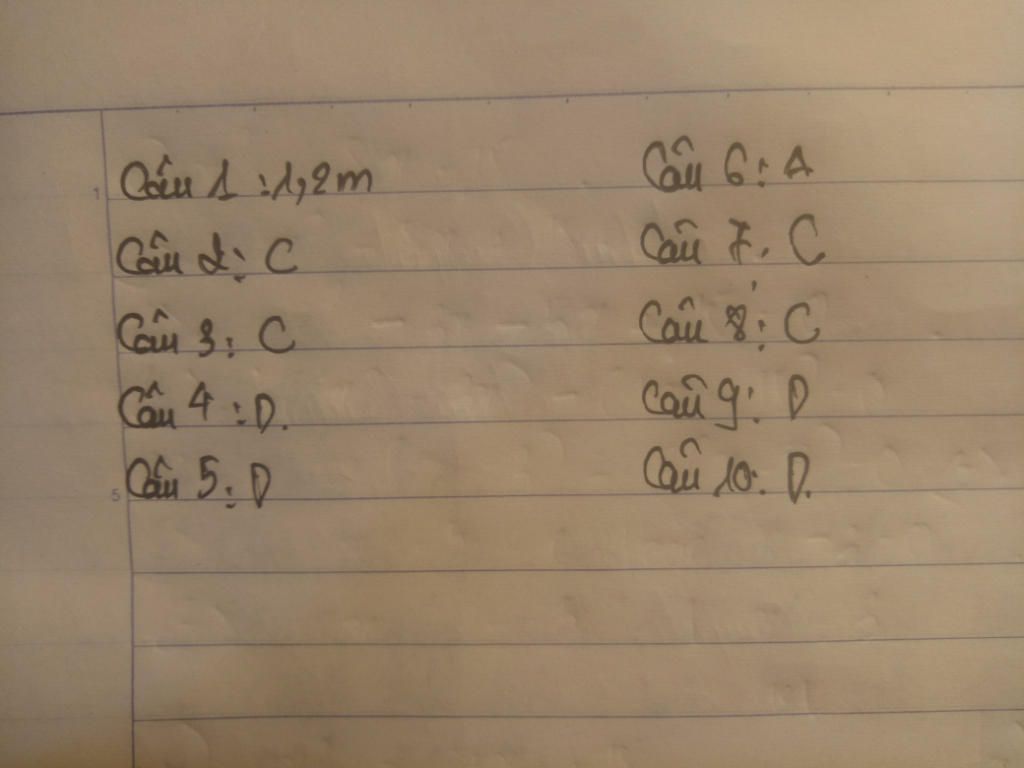 Câu 1 : 1,2m
Câu 2: C
Câu 3: C
Câu 4 : D.
Câu 5: D
Câu 6: A
Câu 7. C
Câu 8: C
Câu 9: D
Câu 10: D.
1
5